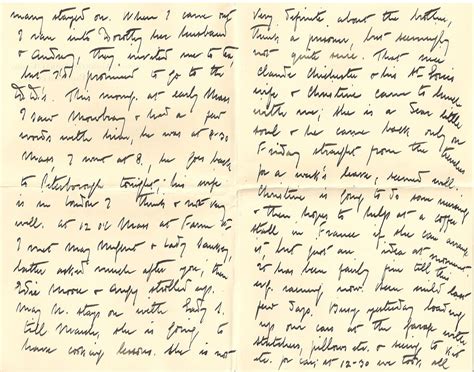 many stayed on. When I came out
I ran into Dorothy her husband
& Audrey, they invited me to tea
but I'd promised to go to the
D.D.s. This morng. at early Mass
I saw Mowbray & had a few
words with him, he was at 8-30
Mass I went at 8, he goes back
to Peterborough tonight, his wife
is in London I think & not very
well. At 12 Mass at Farm St
I met May Nugent & Lady
latter asked much after you, then
Edie Moore & strolled up.
May N. stays on with Lady S.
till March, she is going to
have cooking lessons. She is not
Very definite about the brother,
thinks a prisoner, but seemingly
not quite sure. That nice
Claude Chichester & his
wife & Christine came to lunch
with me; she is a dear little
soul & he came back only on
Friday straight from the trenches
for a week's leave, seemed well.
Christine is going to do some nursing
& then hopes to help at a coffee
stall in France if she can arrange
it, but just an idea at moment.
It has been fairly fine till this
evg. raining now. Been mild last
few days. Busy yesterday loading
up our cars at the Garage with
stretchers, pillows etc. & seeing to Kit
etc. for cars; at 12-30 we took all